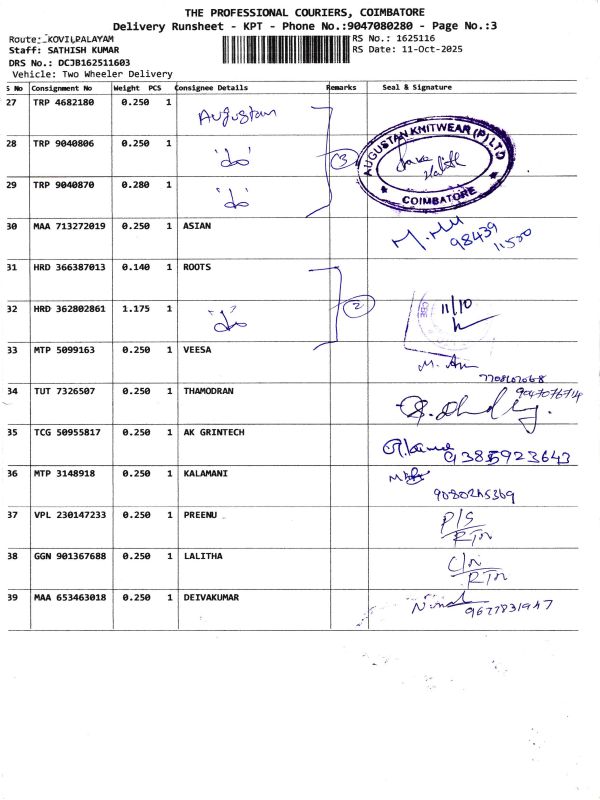 THE PROFESSIONAL COURIERS, COIMBATORE
Delivery Runsheet - KPT - Phone No.:9047080280 - Page No.:3
Route: KOVILPALAYAM
RS No.: 1625116
Staff: SATHISH KUMAR
RS Date: 11-Oct-2025
DRS No.: DCJB162511603
Vehicle: Two Wheeler Delivery
S No Consignment No Weight PCS Consignee Details Remarks Seal & Signature
27 TRP 4682180 0.250 1 Augustan
28 TRP 9040806 0.250 1 "do"
3
AUGUSTAN KNITWEAR (P) LTD
COIMBATORE
29 TRP 9040870 0.280 1 "do"
30 MAA 713272019 0.250 1 ASIAN
98439
11550
31 HRD 366387013 0.140 1 ROOTS
32 HRD 362802861 1.175 1 "do" 2 11/10
33 MTP 5099163 0.250 1 VEESA
34 TUT 7326507 0.250 1 THAMODRAN
35 TCG 50955817 0.250 1 AK GRINTECH
36 MTP 3148918 0.250 1 KALAMANI
37 VPL 230147233 0.250 1 PREENU P/S
RTn
38 GGN 901367688 0.250 1 LALITHA
RTn
39 MAA 653463018 0.250 1 DEIVAKUMAR